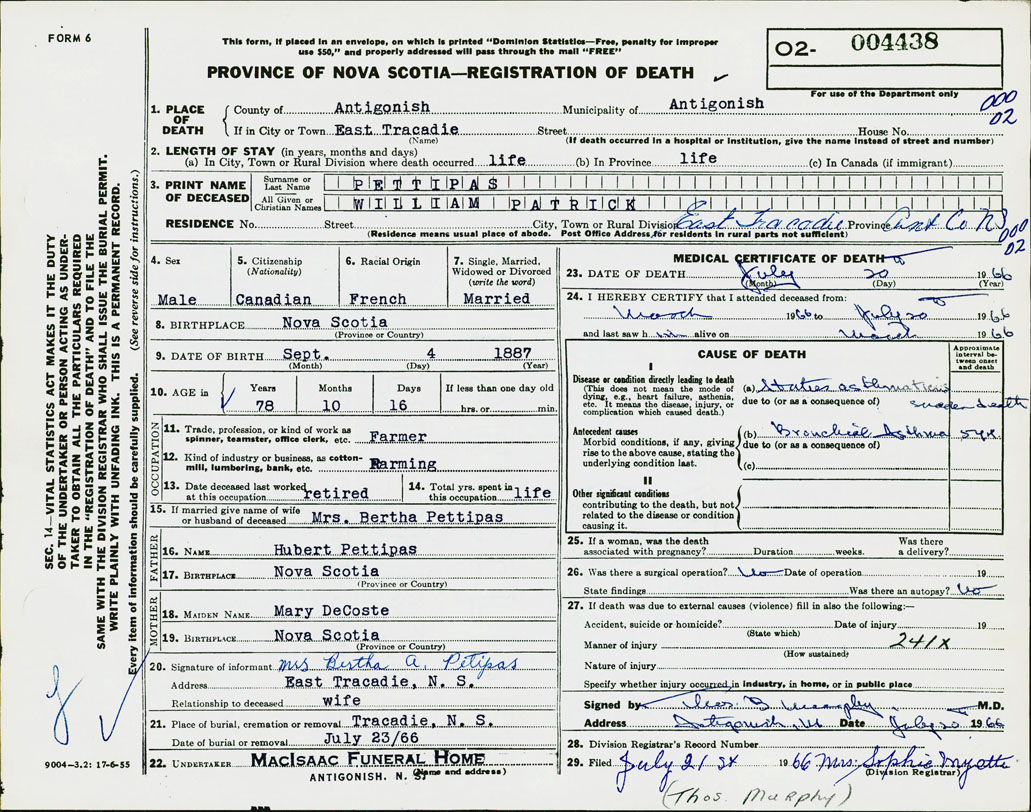 FORM 6
This form, if placed in an envelope, on which is printed "Dominion Statistics—Free, penalty for improper
use $50," and properly addressed will pass through the mail "FREE"
PROVINCE OF NOVA SCOTIA—REGISTRATION OF DEATH
02- 004438
For use of the Department only
000
02
1. PLACE OF DEATH
County of Antigonish Municipality of Antigonish
If in City or Town East Tracadie Street House No.
(Name) (If death occurred in a hospital or institution, give the name instead of street and number)
2. LENGTH OF STAY (in years, months and days)
(a) In City, Town or Rural Division where death occurred life (b) In Province life (c) In Canada (if immigrant)
3. PRINT NAME OF DECEASED
Surname or Last Name PETTIPAS
All Given or Christian Names WILLIAM PATRICK
RESIDENCE No. Street City, Town or Rural Division East Tracadie Province Ant Co NS
(Residence means usual place of abode. Post Office Address, for residents in rural parts not sufficient)
000
02
4. Sex Male
5. Citizenship (Nationality) Canadian
6. Racial Origin French
7. Single, Married, Widowed or Divorced (write the word) Married
8. BIRTHPLACE Nova Scotia
(Province or Country)
9. DATE OF BIRTH Sept. 4 1887
(Month) (Day) (Year)
10. AGE in Years Months Days If less than one day old
78 10 16 hrs. or min.
OCCUPATION
11. Trade, profession, or kind of work as spinner, teamster, office clerk, etc. Farmer
12. Kind of industry or business, as cotton-mill, lumbering, bank, etc. Farming
13. Date deceased last worked at this occupation retired
14. Total yrs. spent in this occupation life
15. If married give name of wife or husband of deceased Mrs. Bertha Pettipas
FATHER
16. NAME Hubert Pettipas
17. BIRTHPLACE Nova Scotia
(Province or Country)
MOTHER
18. MAIDEN NAME Mary DeCoste
19. BIRTHPLACE Nova Scotia
(Province or Country)
20. Signature of informant Mrs Bertha A. Petipas
Address East Tracadie, N. S.
Relationship to deceased wife
21. Place of burial, cremation or removal Tracadie, N. S.
Date of burial or removal July 23/66
22. UNDERTAKER MACISAAC FUNERAL HOME
ANTIGONISH. N. S. (Name and address)
MEDICAL CERTIFICATE OF DEATH
23. DATE OF DEATH July 20 1966
(Month) (Day) (Year)
24. I HEREBY CERTIFY that I attended deceased from:
March 1966 to July 20 1966
and last saw him alive on March 1966
CAUSE OF DEATH
Approximate interval between onset and death
I
Disease or condition directly leading to death
(This does not mean the mode of dying, e.g., heart failure, asthenia, etc. It means the disease, injury, or complication which caused death.)
(a) Status asthmaticus
due to (or as a consequence of) sudden death
Antecedent causes
Morbid conditions, if any, giving rise to the above cause, stating the underlying condition last.
(b) Bronchial Asthma 5 yr
due to (or as a consequence of)
(c)
II
Other significant conditions
contributing to the death, but not related to the disease or condition causing it.
25. If a woman, was the death associated with pregnancy? Duration weeks. Was there a delivery?
26. Was there a surgical operation? No Date of operation 19
State findings Was there an autopsy? No
27. If death was due to external causes (violence) fill in also the following:—
Accident, suicide or homicide? Date of injury 19
(State which)
Manner of injury 241X
(How sustained)
Nature of injury
Specify whether injury occurred in industry, in home, or in public place
Signed by Thos. Murphy M.D.
Address Antigonish, Date July 20 1966
28. Division Registrar's Record Number
29. Filed July 21 st 1966 Mrs. Sophie Myatte
(Division Registrar)
(Thos. Murphy)
SEC. 14—VITAL STATISTICS ACT MAKES IT THE DUTY
OF THE UNDERTAKER OR PERSON ACTING AS UNDER-
TAKER TO OBTAIN ALL THE PARTICULARS REQUIRED
IN THE "REGISTRATION OF DEATH" AND TO FILE THE
SAME WITH THE DIVISION REGISTRAR WHO SHALL ISSUE THE BURIAL PERMIT.
WRITE PLAINLY WITH UNFADING INK. THIS IS A PERMANENT RECORD.
Every item of information should be carefully supplied. (See reverse side for instructions.)
9004-3.2: 17-6-55